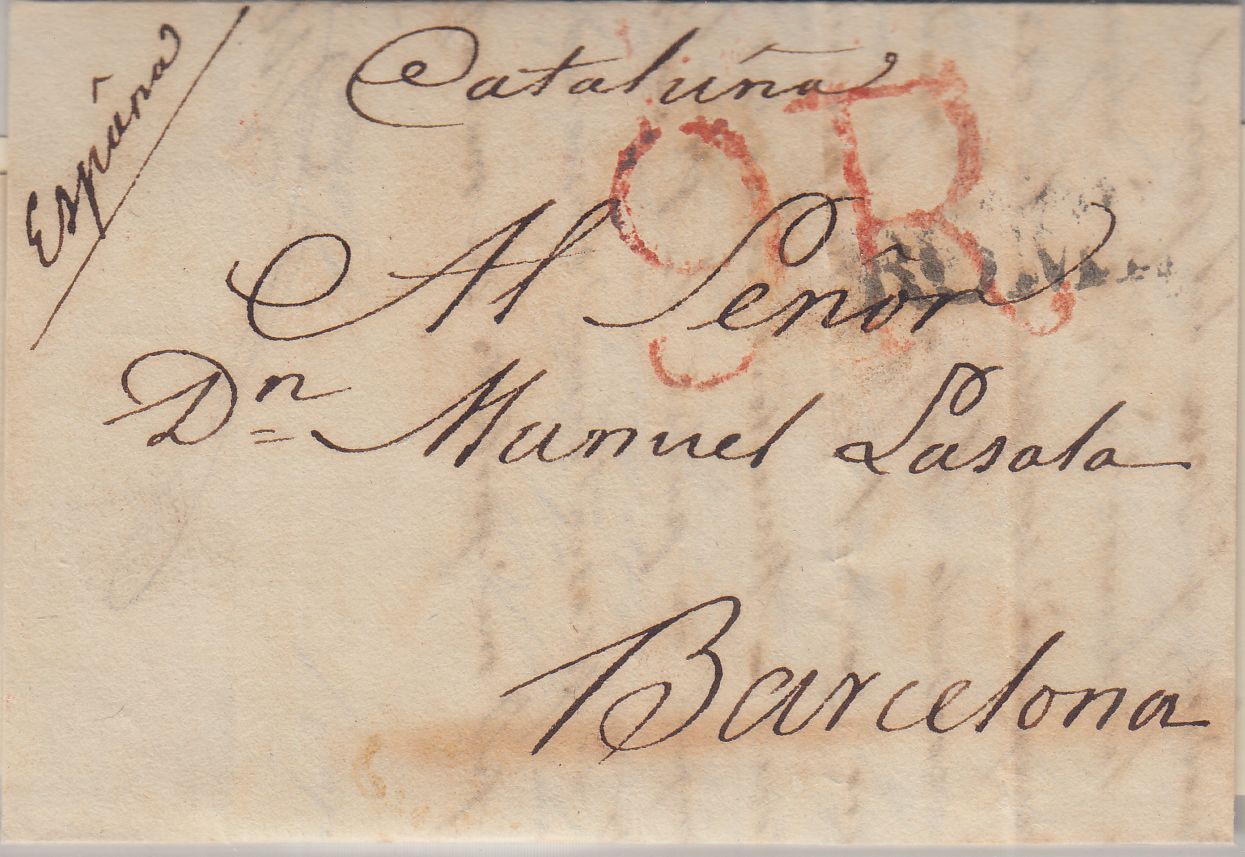 España
Cataluña
9R.
ROMA
Al Señor
Dn Manuel Lasala
Barcelona